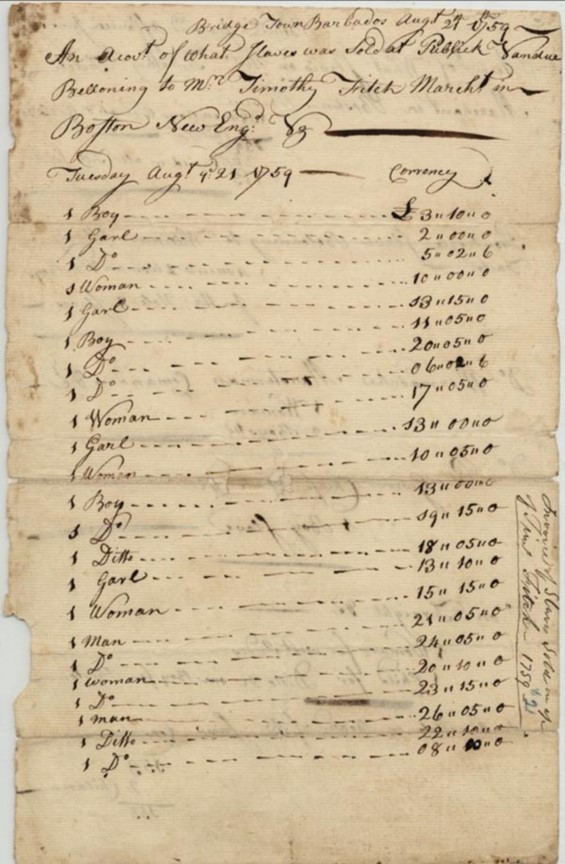 Bridge Town Barbados Augt 21th 1759
An Acovt of what Slaves was Sold at Publick Vandue
Bellonging to Mr Timothy Fitch Marcht in
Boston New Engd Viz
Tuesday Augt ye 21 1759 Currency
1 Boy £3 " 10 " 0
1 Garl 2 " 00 " 0
1 Do 5 " 02 " 6
1 Woman 10 " 00 " 0
1 Garl 13 " 15 " 0
1 Boy 11 " 05 " 0
1 Do 20 " 05 " 0
1 Do 06 " 02 " 6
1 Woman 17 " 05 " 0
1 Garl 13 " 00 " 0
1 Woman 10 " 05 " 0
1 Boy 13 " 00 " 0
1 Do 19 " 15 " 0
1 Ditto 18 " 05 " 0
1 Garl 13 " 10 " 0
1 Woman 15 " 15 " 0
1 Man 21 " 05 " 0
1 Do 24 " 05 " 0
1 Woman 20 " 10 " 0
1 Do 23 " 15 " 0
1 man 26 " 05 " 0
1 Ditto 22 " 10 " 0
1 Do 08 " 10 " 0
Invoice of Slaves Sold
of Timo Fitch 1759